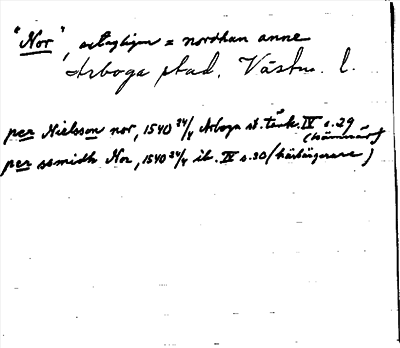 "Nor", antagligen = nordhan anne
Arboga stad, Västm. l.
per Nielsson nor, 1540 24/4 Arboga st. tänk. IV s. 29
(hämnär)
per ssmidh Nor, 1540 24/4 ib. IV s. 30 (härbärgerare)